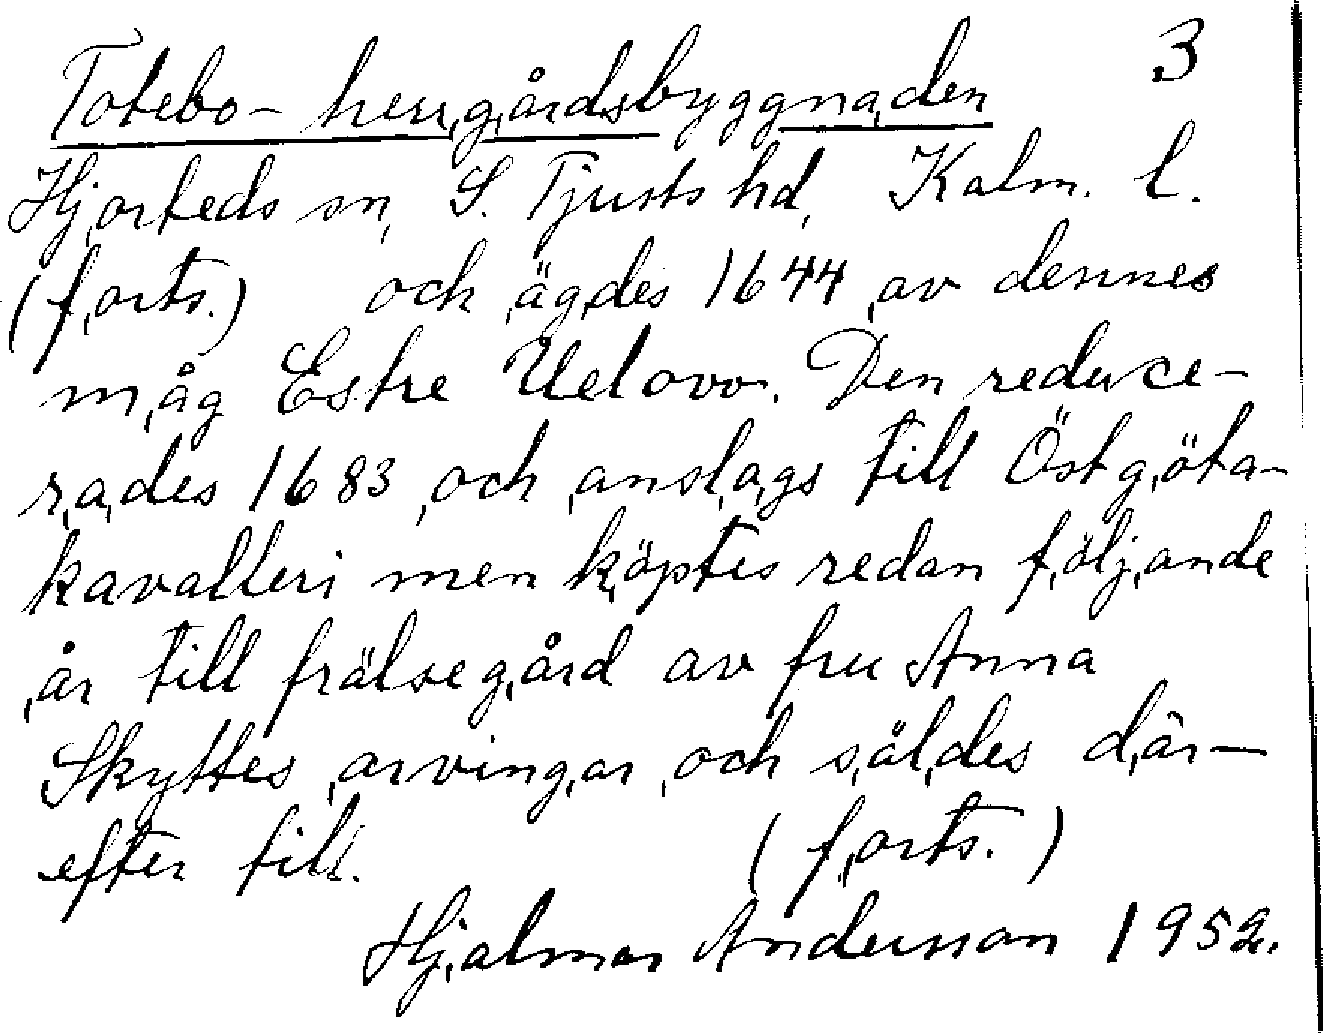 Totebo-herrgårdsbyggnaden 3
Hjorteds sn, S. Tjusts hd, Kalm. l.
(forts.) och ägdes 1644 av dennes
måg Eske Uelovv. Den reduce-
rades 1683 och anslags till Östgöta-
kavalleri men köptes redan följande
år till frälsegård av fru Anna
Skyttes arvingar och såldes där-
efter till. (forts.)
Hjalmar Andersson 1952.